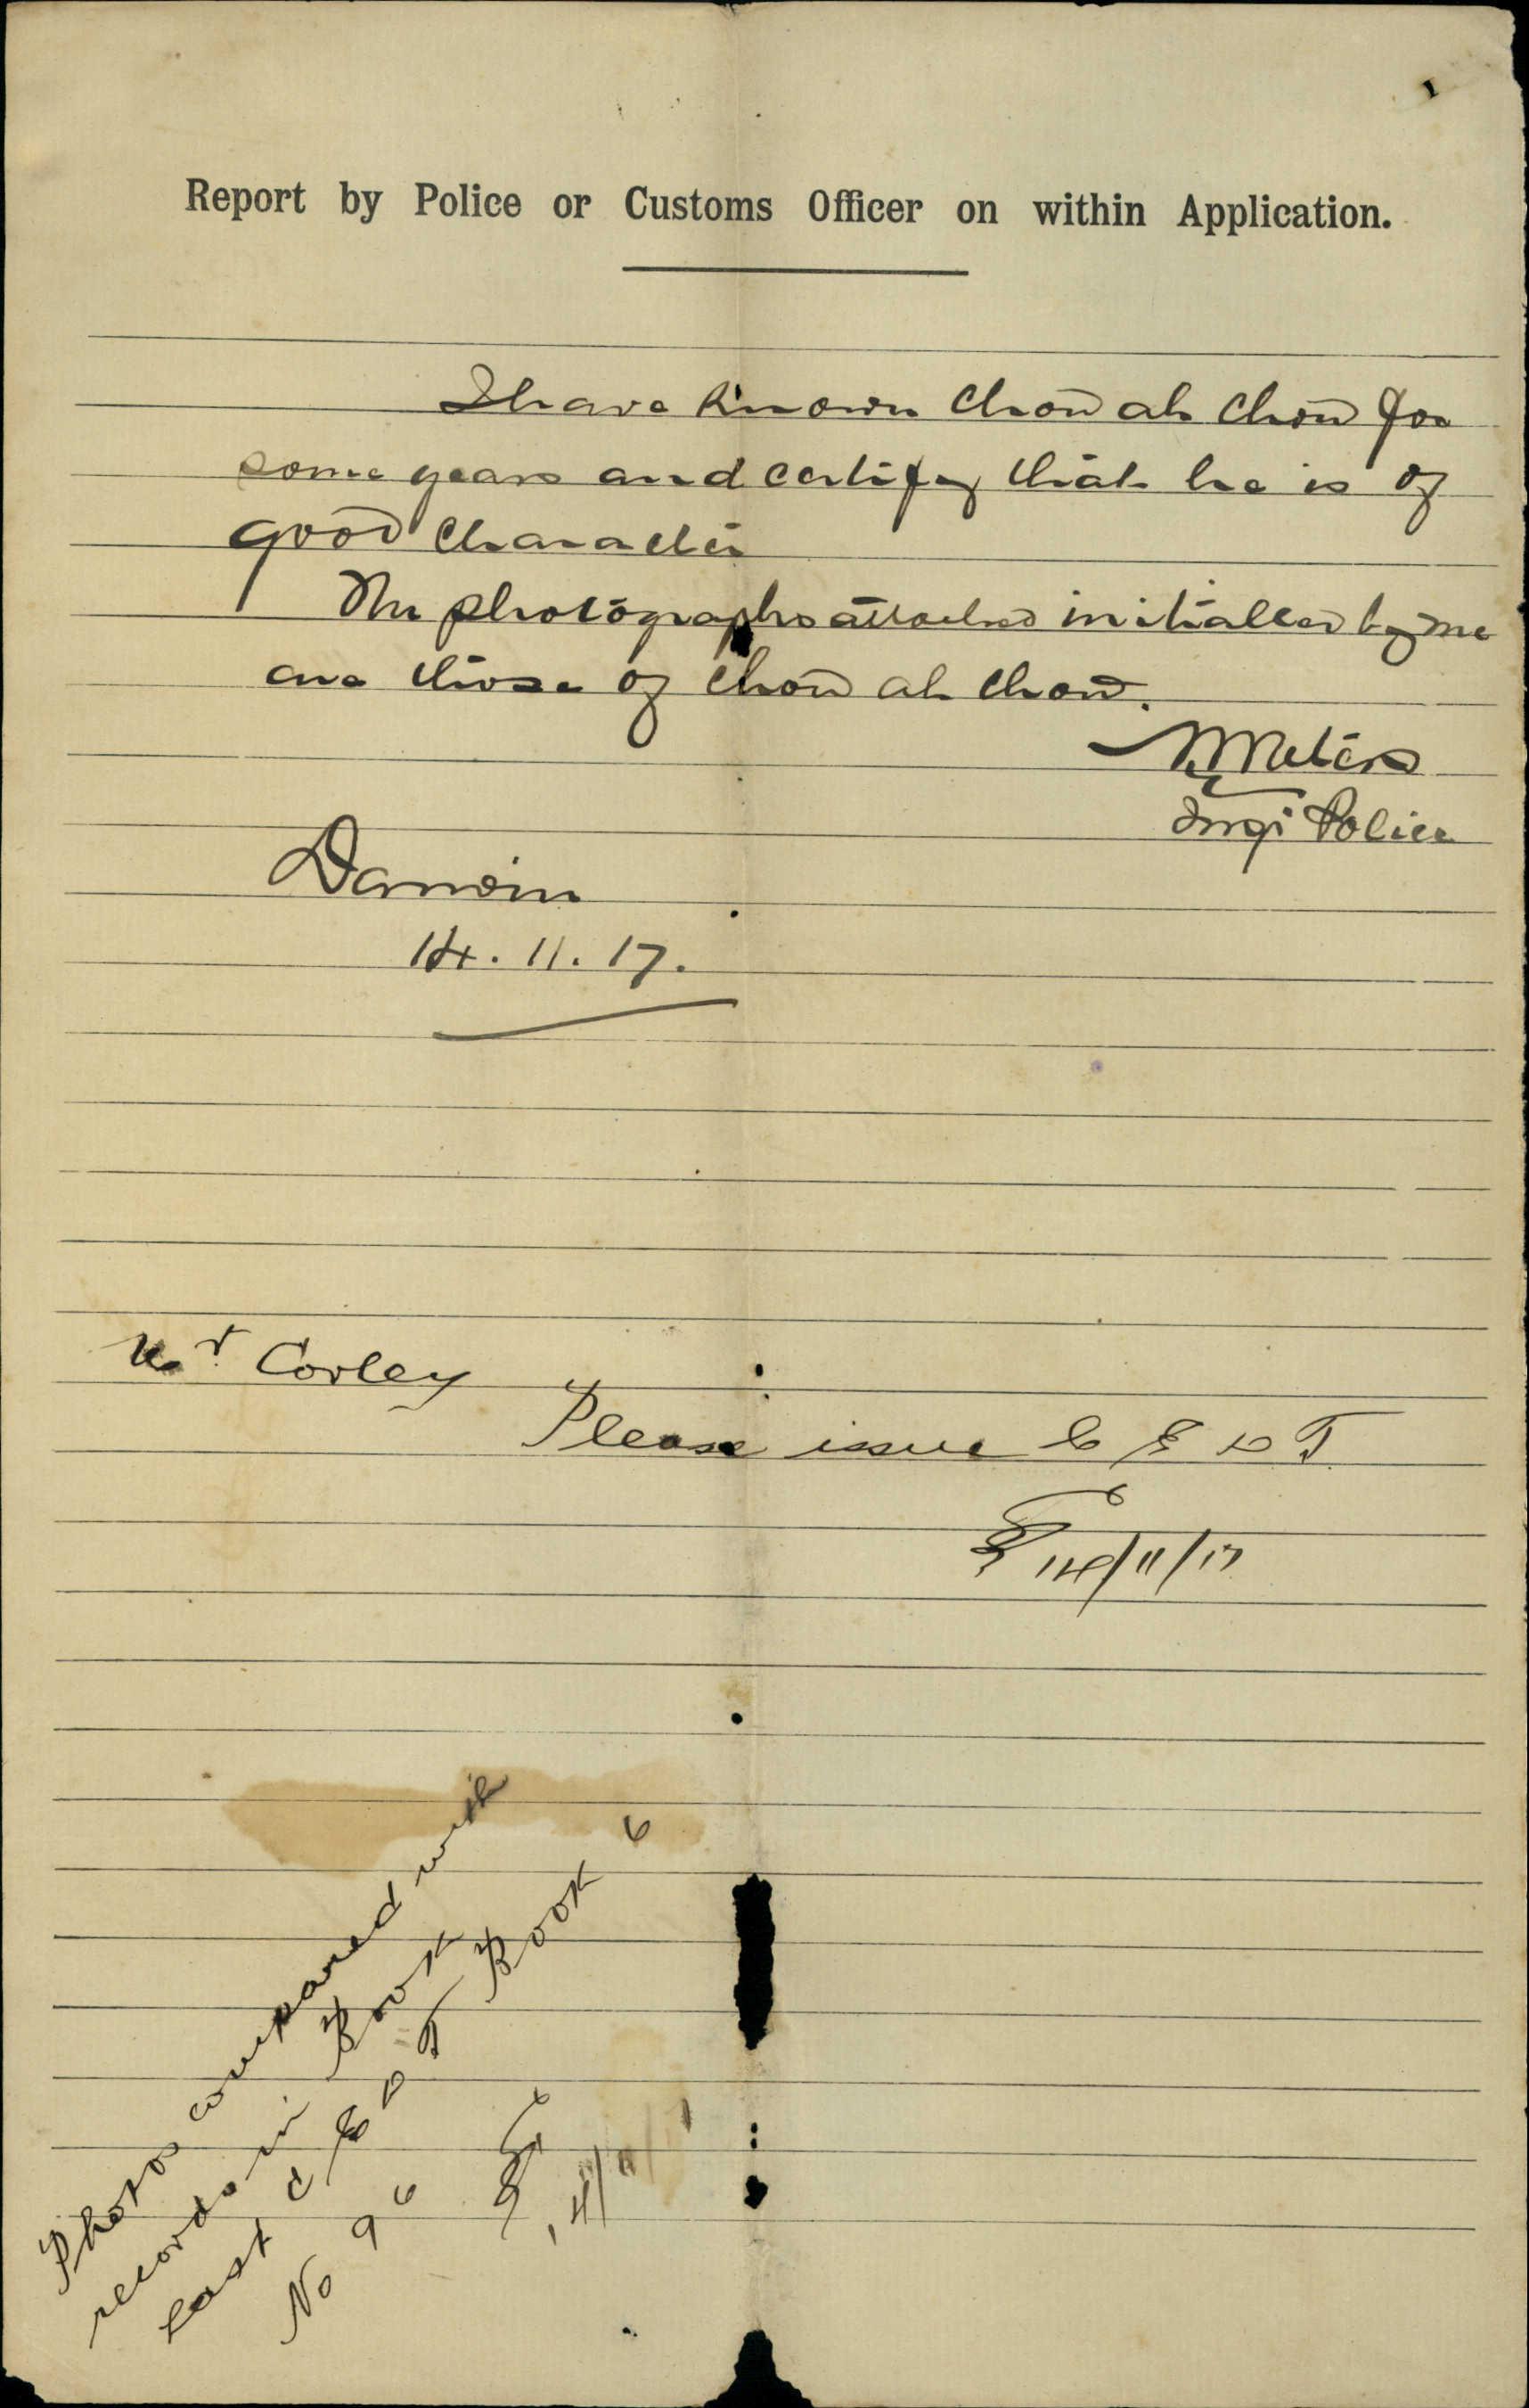 Report by Police or Customs Officer on within Application.
I have known Chow ah Chow for
some years and certify that he is of
good character
The photographs attached initialled by me
are those of Chow ah Chow.
N Waters
Insp Police
Darwin
14. 11. 17.
Mr Corley
Please issue C E D T
14/11/17
Photos compared with
records in Book
last C E D T Book 6
No 96
14/11/1